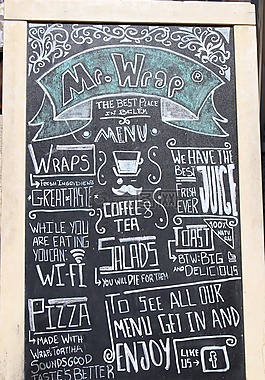 Mr. Wrap ®
THE BEST PLACE
IN BELÉM
MENU
WRAPS
FRESH INGREDIENTS
GREAT TASTE
WHILE YOU
ARE EATING
YOU CAN:
WI-FI
PIZZA
MADE WITH
WRAP TORTIHA
SOUNDS GOOD
TASTES BETTER
COFFEE &
TEA
SALADS
YOU WILL DIE FOR THEM
WE HAVE THE
BEST
FRESH
EVER
JUICE
100%
NATURAL
TOAST
BTW: BIG
AND
DELICIOUS
TO SEE ALL OUR
MENU GET IN AND
ENJOY
LIKE
US
f